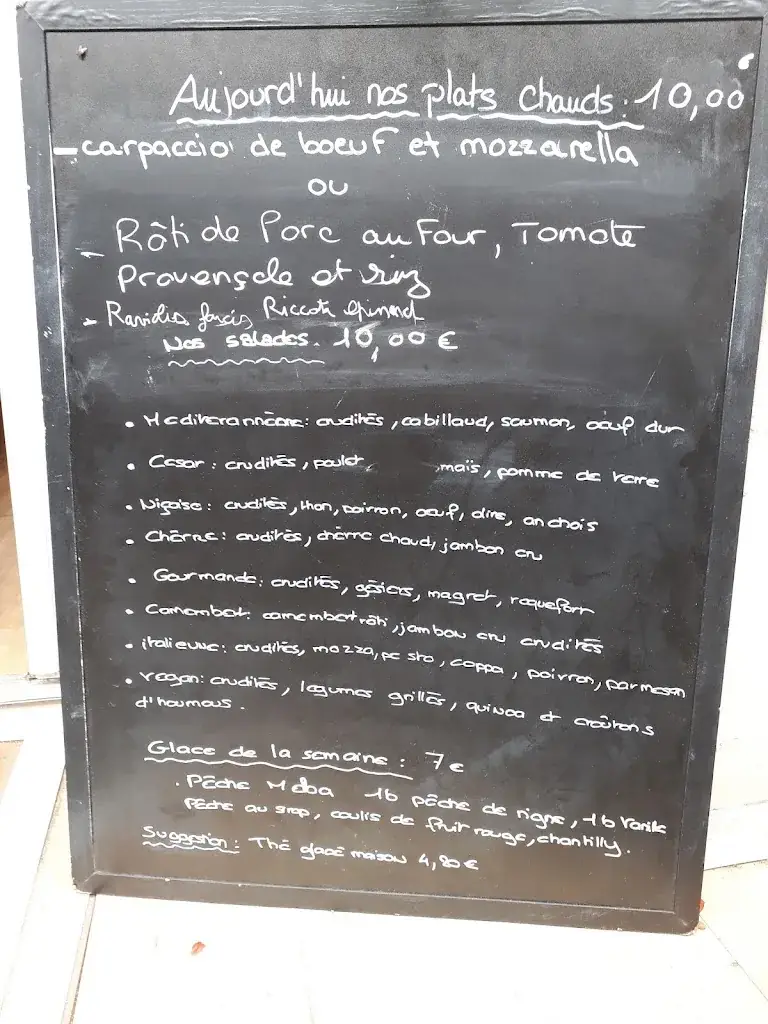 Aujourd'hui nos plats chauds : 10,00
- carpaccio de boeuf et mozzarella
ou
- Rôti de Porc au Four, Tomate
Provençale et riz
- Raviolis farcis Riccota épinard
Nos salades. 10,00 €
• Mediterannéene: crudités, cabillaud, saumon, oeuf dur
• Cesar : crudités, poulet, maïs, pomme de terre
• Niçoise : crudités, thon, poivron, oeuf, olive, anchois
• Chèvre : crudités, chèvre chaud, jambon cru
• Gourmande : crudités, gésiers, magret, roquefort
• Camembert: camembert rôti, jambon cru crudités
• italienne : crudités, mozza, pesto, coppa, poivron, parmesan
• vegan: crudités, legumes grillés, quinoa et croûtons
d'houmous.
Glace de la semaine : 7 €
. Pêche Melba 1b pêche de vigne, 1b vanille
Pêche au sirop, coulis de fruit rouge, chantilly.
Suggestion : Thé glacé maison 4,80 €